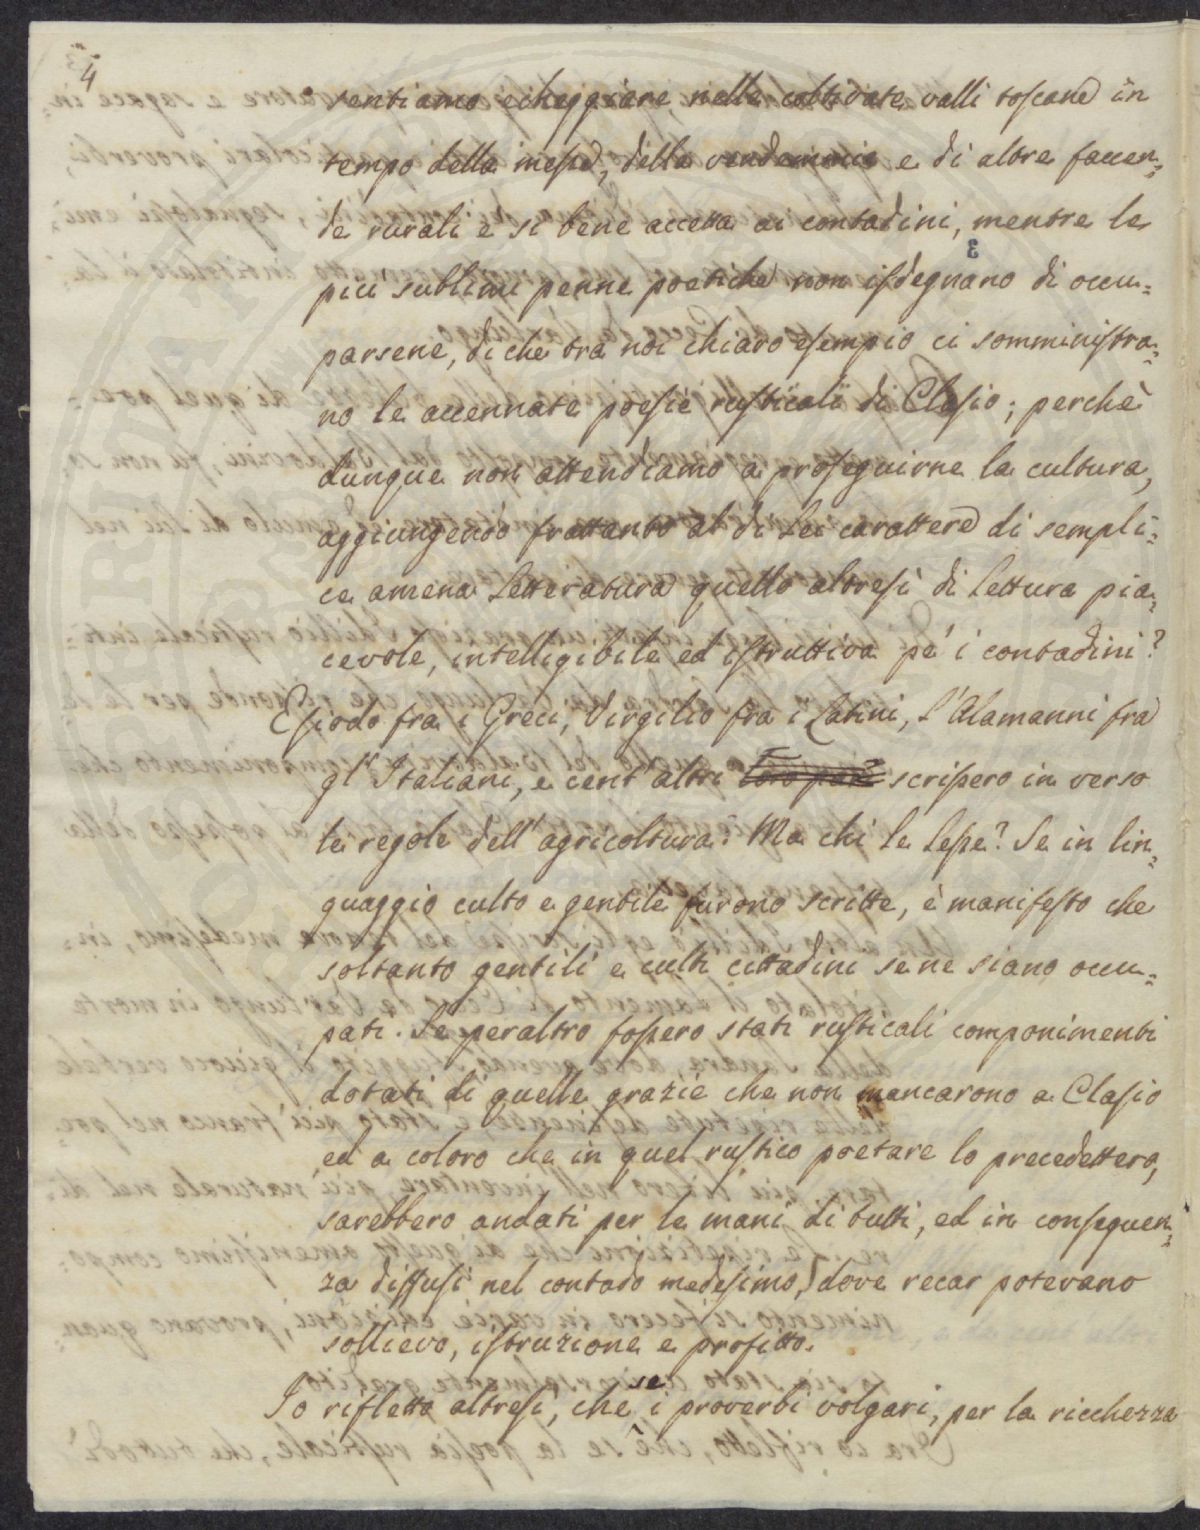 4
sentiamo echeggiare nelle coltivate valli toscane in
tempo della messe, della vendemmia e di altre faccen=
de rurali è sì bene accetta ai contadini, mentre le
più sublimi penne poetiche non isdegnano di occu=
parsene, di che tra noi chiaro esempio ci somministra=
no le accennate poesie rusticali di Clasio; perchè
dunque non attendiamo a proseguirne la cultura,
aggiungendo frattanto al di lei carattere di sempli=
ce amena letteratura quello altresì di lettura pia=
cevole, intelligibile ed istruttiva pe' i contadini?
Esiodo fra i Greci, Virgilio fra i Latini, l'Alamanni fra
gl'Italiani, e cent'altri scrissero in verso
le regole dell'agricoltura: Ma chi le lesse? Se in lin=
guaggio culto e gentile furono scritte, è manifesto che
soltanto gentili e culti cittadini se ne siano occu=
pati. Se peraltro fossero stati rusticali componimenti
dotati di quelle grazie che non mancarono a Clasio
ed a coloro che in quel rustico poetare lo precedettero,
sarebbero andati per le mani di tutti, ed in conseguen=
za diffusi nel contado medesimo, dove recar potevano
sollievo, istruzione e profitto.
Io rifletto altresì, che se i proverbi volgari, per la ricchezza